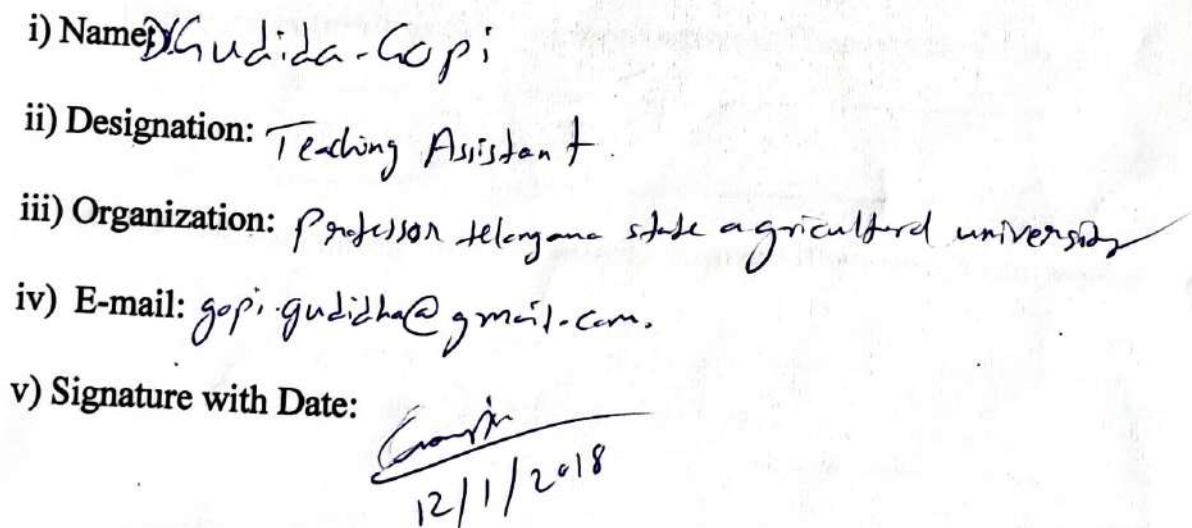 i) Name: Gudida. Gopi
ii) Designation: Teaching Assistant.
iii) Organization: Professor telangana state agricultural university
iv) E-mail: gopi.gudidha@gmail.com.
v) Signature with Date:
12/1/2018